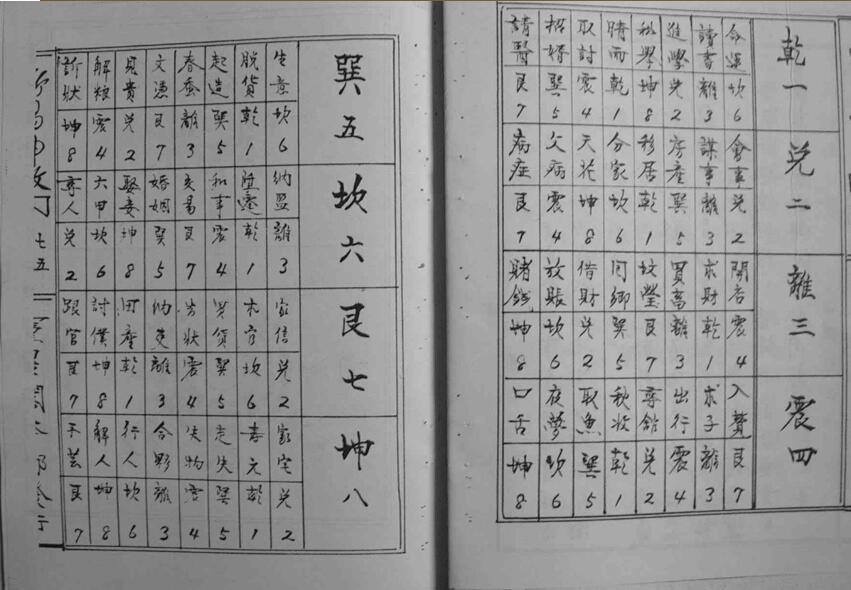 乾一
命運 坎 6
讀書 離 3
進學 兌 2
科舉 坤 8
晴雨 乾 1
取討 震 4
招婿 巽 5
請醫 艮 7
兌二
會事 兌 2
謀事 離 3
房產 巽 5
移居 乾 1
分家 坎 6
天花 坤 8
父病 震 4
病症 艮 7
離三
開店 震 4
求財 乾 1
買畜 離 3
坟瑩 艮 7
同鄉 巽 5
借財 兌 2
放賬 坎 6
賭錢 坤 8
震四
入贅 艮 7
求子 離 3
出行 震 4
尋館 兌 2
秋收 乾 1
取魚 巽 5
夜夢 坎 6
口舌 坤 8
巽五
生意 坎 6
脫貨 乾 1
起造 巽 5
春蚕 離 3
文憑 艮 7
見貴 兌 2
解糧 震 4
訴狀 坤 8
坎六
納監 離 3
乾 1
和事 震 4
交易 艮 7
婚姻 巽 5
娶妾 坤 8
六甲 坎 6
尋人 兌 2
艮七
家信 兌 2
坎 6
買貨 巽 5
告狀 震 4
納吏 離 3
田產 乾 1
討僕 坤 8
跟官 艮 7
坤八
家宅 兌 2
壽元 乾 1
走失 巽 5
失物 震 4
合夥 離 3
行人 坎 6
解人 坤 8
手芸 艮 7
七五